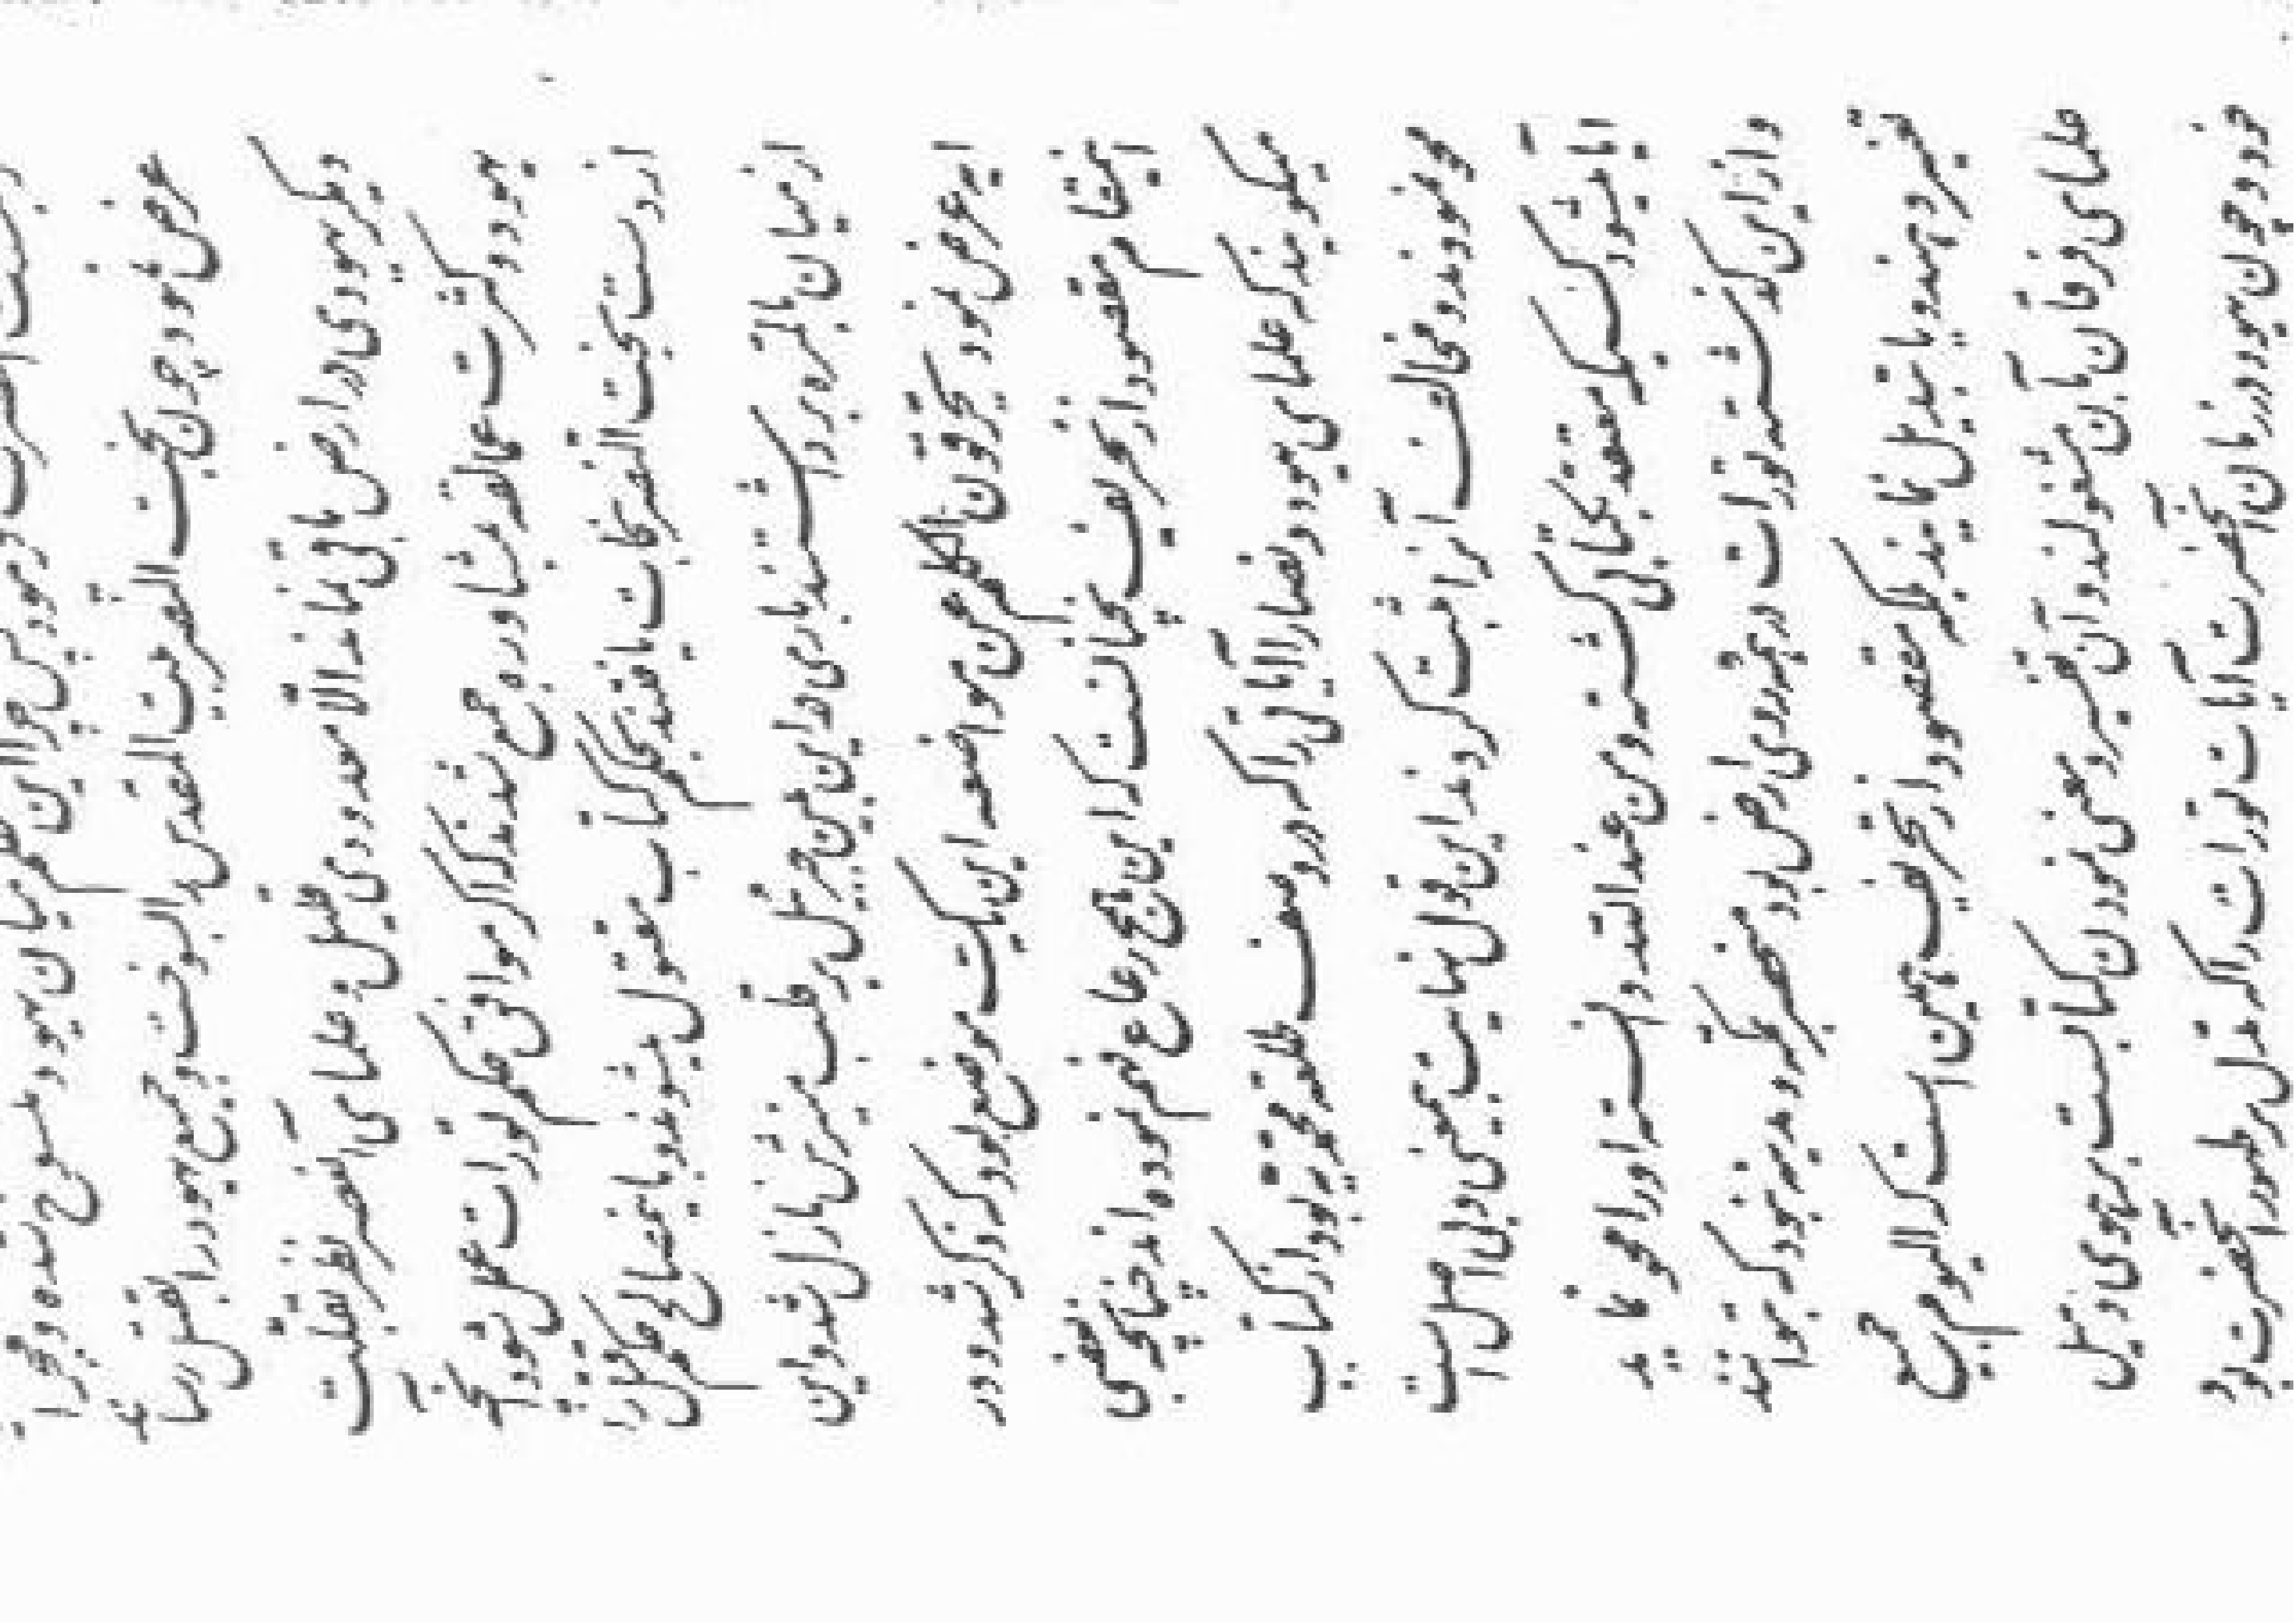 فرمود پس چرا این حکم میان یهود منسوخ شده و مجرا
عرض نمود چون بخت النصر بیت المقدس را بسوخت و جمیع یهود را بقتل رسانید
دیگر یهودی در ارض باقی نماند الا معدودی قلیل و علمای آنعصر نظر بقلت
یهود و کثرت عمالقه بمشاوره جمع شدند که اگر موافق حکم تورات عمل شود آنچه
از دست بخت النصر نجات یافتند بحکم کتاب مقتول میشوند و باینمصالح حکم قتل را
از میان بالمره برداشتند باری در این بین جبرئیل بر قلب منیرش نازل شد و این
ایه عرض نمود یحرفون الکلم عن مواضعه این یک موضع بود که ذکر شد و در
اینمقام مقصود از تحریف نچنانست که این همج رعاع فهم نموده اند چنانچه بعضی
میگویند که علمای یهود و نصارا آیاتی را که در وصف طلعت محمدیه بود از کتاب
محو نمودند و مخالف آنرا ثبت کردند این قول نهایت بیمعنی و بی اصل است
آیا میشود کسیکه معتقد بکتابی گشته و من عند الله دانسته او را محو نماید
و از این گذشته تورات در همه روی ارض بود منحصر بمکه و مدینه نبود که بتوانند
تغییر دهند و یا تبدیل نمایند بلکه مقصود از تحریف همین است که الیوم جمیع
علمای فرقان بآن مشغولند و آن تفسیر و معنی نمودن کتابست بر هوی و میل
خود و چون یهود در زمان آنحضرت آیات تورات را که مدل بر ظهور آنحضرت بود